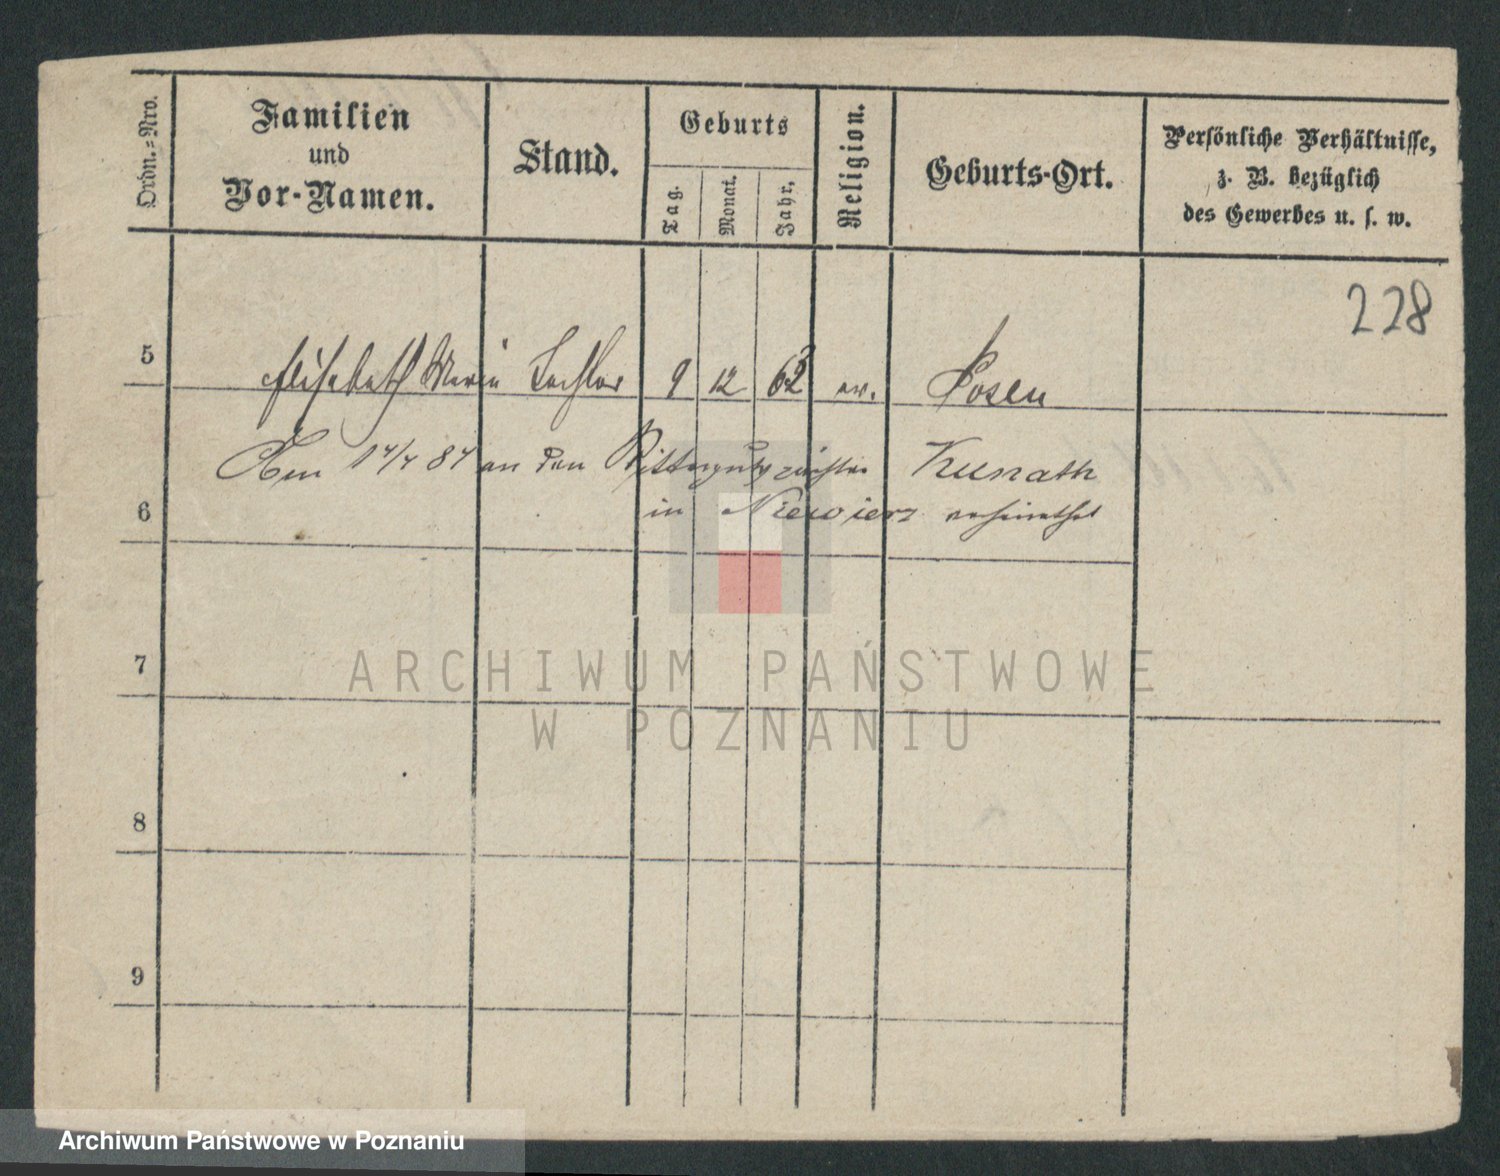 Ordn.=Nro.
Familien
und
Vor-Namen.
Stand.
Geburts
Tag.
Monat.
Jahr.
Religion.
Geburts-Ort.
Persönliche Verhältnisse,
z. B. bezüglich
des Gewerbes u. s. w.
228
5 Elisabeth Maria Tochter 9 12 63 ev. Posen
Am 14/4 84 an den Rittergutspächter Kunath
6 in Niewierz verheirathet
7
ARCHIWUM PAŃSTWOWE
W POZNANIU
8
9
Archiwum Państwowe w Poznaniu